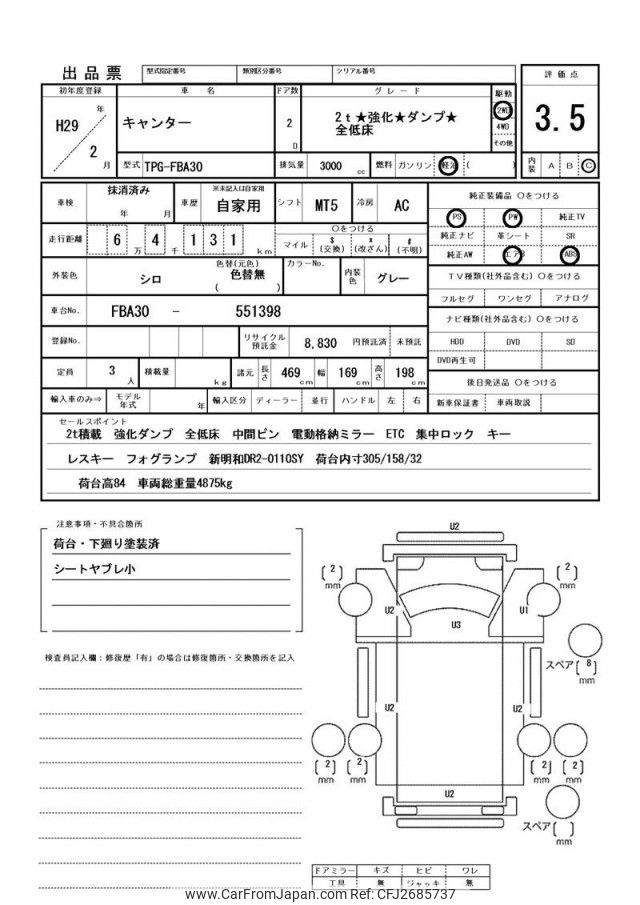 出品票 型式指定番号 類別区分番号 シリアル番号
初年度登録 車名 ドア数 グレード 駆動 評価点
H29 年 2 月 キャンター 2 D 2t★強化★ダンプ★ 2WD 3.5
全低床 4WD
その他
型式 TPG-FBA30 排気量 3000 cc 燃料 ガソリン 軽油 ( ) 内装 A B C
車検 抹消済み 年 月 車歴 ※未記入は自家用 自家用 シフト MT5 冷房 AC 純正装備品 〇をつける
PS PW 純正TV
走行距離 6 万 4 千 1 3 1 km 〇をつける
マイル $ (交換) x (改ざん) # (不明) 純正ナビ 革シート SR
純正AW エアB ABS
外装色 シロ 色替(元色) 色替無 ( ) カラーNo. 内装色 グレー TV種類(社外品含む) 〇をつける
フルセグ ワンセグ アナログ
車台No. FBA30 - 551398 ナビ種類(社外品含む) 〇をつける
登録No. リサイクル預託金 8,830 円預託済 未預託 HDD DVD SD
DVD再生可
定員 3 人 積載量 kg 諸元 長さ 469 cm 幅 169 cm 高さ 198 cm 後日発送品 〇をつける
輸入車のみ⇒ モデル年式 年 輸入区分 ディーラー 並行 ハンドル 左 右 新車保証書 車両取説
セールスポイント
2t積載 強化ダンプ 全低床 中間ピン 電動格納ミラー ETC 集中ロック キー
レスキー フォグランプ 新明和DR2-0110SY 荷台内寸305/158/32
荷台高84 車両総重量4875kg
注意事項・不具合箇所
荷台・下廻り塗装済
シートヤブレ小
検査員記入欄:修復歴「有」の場合は修復箇所・交換箇所を記入
U2
[2] mm [2] mm
U2 U1
U3
スペア [8] mm
U2 U2
[2] mm [2] mm [2] mm [2] mm
U2
スペア [ ] mm
ドアミラー キズ ヒビ ワレ
工具 無 ジャッキ 無
www.CarFromJapan.com Ref: CFJ2685737